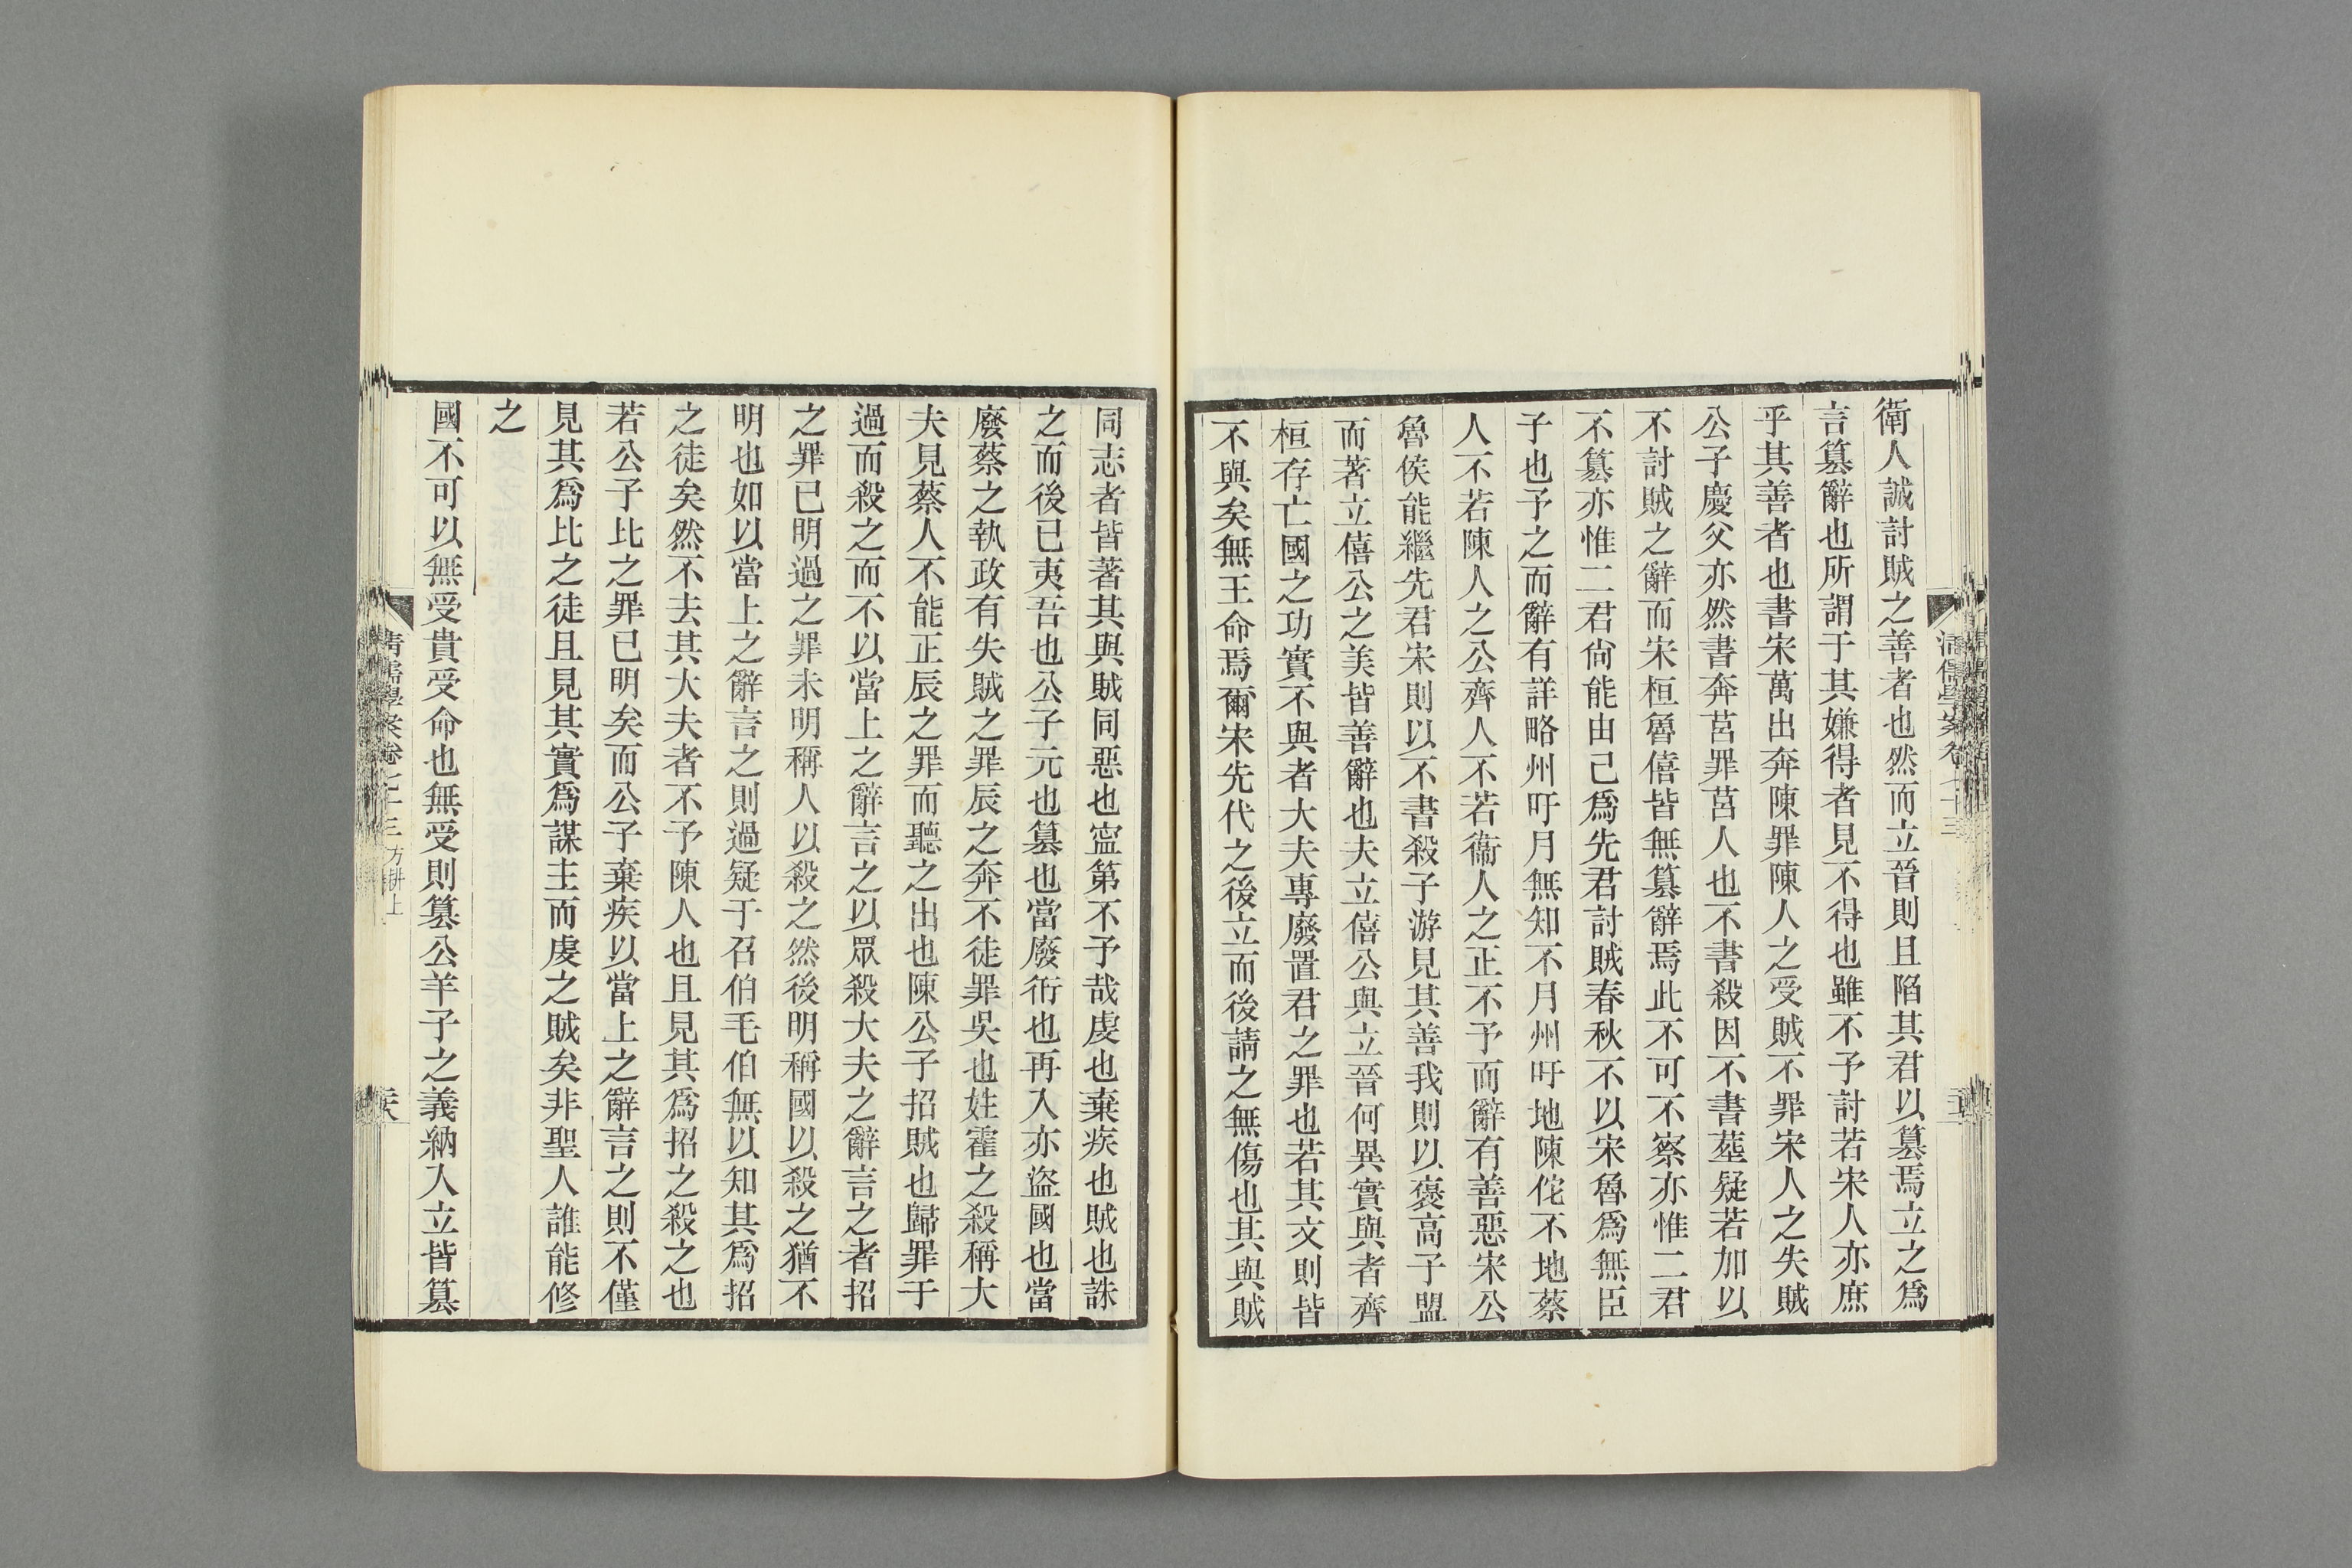 衛人誠討賊之善者也然而立晉則且陷其君以篡焉立之爲
言篡辭也所謂于其嫌得者見不得也雖不予討若宋人亦庶
乎其善者也書宋萬出奔陳罪陳人之受賊不罪宋人之失賊
公子慶父亦然書奔莒罪莒人也不書殺因不書葬疑若加以
不討賊之辭而宋桓魯僖皆無篡辭焉此不可不察亦惟二君
不篡亦惟二君尙能由己爲先君討賊春秋不以宋魯爲無臣
子也予之而辭有詳略州吁月無知不月州吁地陳佗不地蔡
人不若陳人之公齊人不若衞人之正不予而辭有善惡宋公
魯侯能繼先君宋則以不書殺子游見其善我則以褒高子盟
而著立僖公之美皆善辭也夫立僖公與立晉何異實與者齊
桓存亡國之功實不與者大夫專廢置君之罪也若其文則皆
不與矣無王命焉爾宋先代之後立而後請之無傷也其與賊
同志者皆著其與賊同惡也寍第不予哉虔也棄疾也賊也誅
之而後已夷吾也公子元也篡也當廢衎也再入亦盜國也當
廢蔡之執政有失賊之罪辰之奔不徒罪吳也姓霍之殺稱大
夫見蔡人不能正辰之罪而聽之出也陳公子招賊也歸罪于
過而殺之而不以當上之辭言之以眾殺大夫之辭言之者招
之罪已明過之罪未明稱人以殺之然後明稱國以殺之猶不
明也如以當上之辭言之則過疑于召伯毛伯無以知其爲招
之徒矣然不去其大夫者不予陳人也且見其爲招之殺之也
若公子比之罪已明矣而公子棄疾以當上之辭言之則不僅
見其爲比之徒且見其實爲謀主而虔之賊矣非聖人誰能修
之
國不可以無受貴受命也無受則篡公羊子之義納入立皆篡
清儒學案卷七十三 方耕上